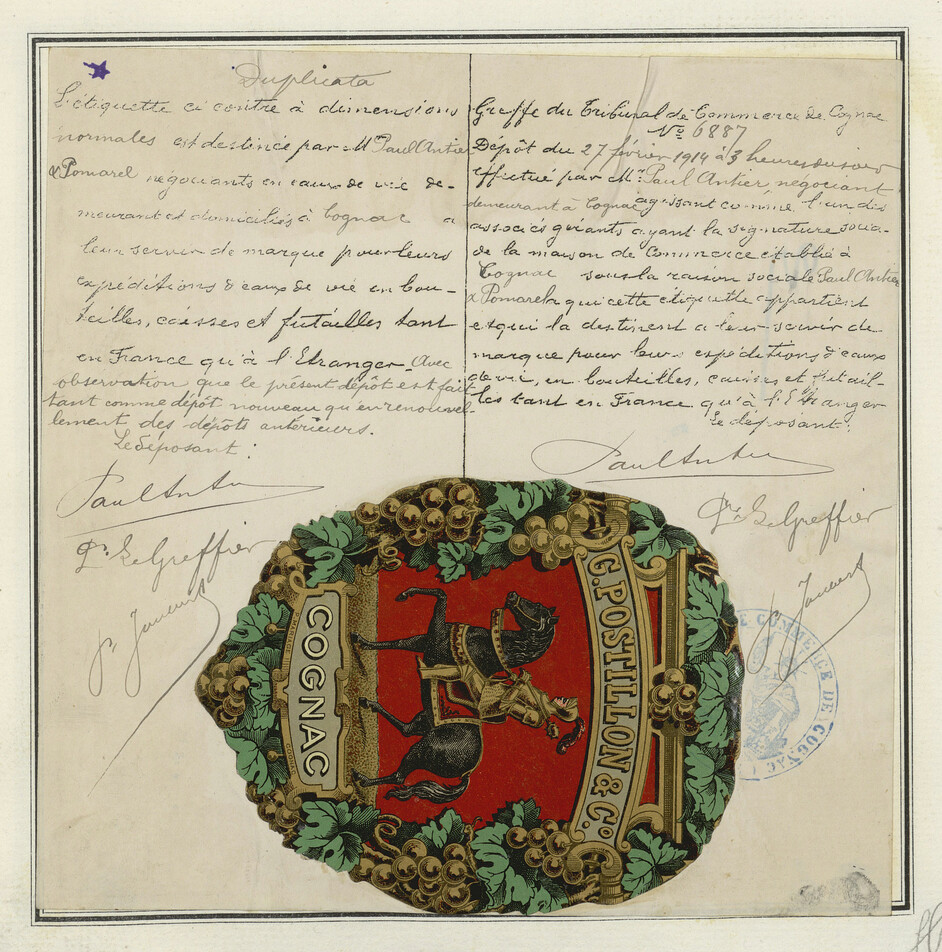 Duplicata
L'étiquette ci contre à dimensions
normales est destinée par MM Paul Antier
& Pomarel négociants en eaux de vie de-
meurant et domiciliés à Cognac a
leur servir de marque pour leurs
expéditions d'eaux de vie en bou-
teilles, caisses et futailles tant
en France qu'à l'Etranger. Avec
observation que le présent dépôt est fait
tant comme dépôt nouveau qu'en renouvel-
lement des dépôts antérieurs.
Le déposant:
Paul Antier
Pr. Le Greffier
Greffe du Tribunal de Commerce de Cognac
No 6887
Dépôt du 27 février 1914 à 3 heures du soir
effectué par Mr. Paul Antier, négociant
demeurant à Cognac agissant comme l'un des
associés gérants ayant la signature socia-
de la maison de Commerce établie à
Cognac sous la raison sociale Paul Antier
& Pomarel a qui cette étiquette appartient
et qui la destinent a leur servir de
marque pour leurs expéditions d'eaux
de vie, en bouteilles, caisses et futail-
les tant en France qu'à l'Etranger
Le déposant:
Paul Antier
Pr. Le Greffier
G. POSTILLON & Co.
COGNAC
DE COMMERCE DE COGNAC